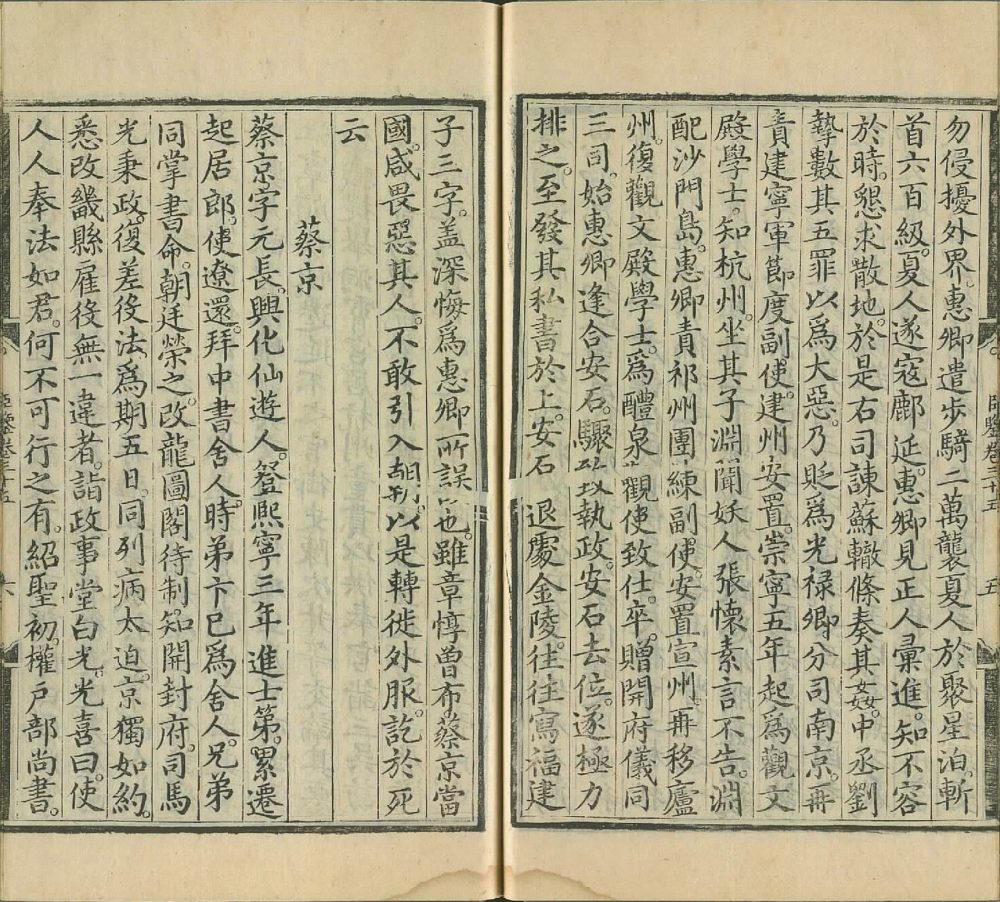 勿侵擾外界。惠卿遣步騎二萬襲夏人於聚星泊。斬
首六百級。夏人遂寇鄜延。惠卿見正人彙進。知不容
於時。懇求散地。於是右司諫蘇轍條奏其姦。中丞劉
摯數其五罪以爲大惡。乃貶爲光祿卿。分司南京。再
責建寧軍節度副使。建州安置。崇寧五年起爲觀文
殿學士。知杭州。坐其子淵聞妖人張懷素言不告。淵
配沙門島。惠卿責祁州團練副使。安置宣州。再移廬
州。復觀文殿學士。爲醴泉觀使致仕。卒。贈開府儀同
三司。始惠卿逢合安石。驟致執政。安石去位。遂極力
排之。至發其私書於上。安石退處金陵。往往寫福建
子三字。蓋深悔爲惠卿所誤也。雖章惇曾布蔡京當
國。咸畏惡其人。不敢引入朝。以是轉徙外服。訖於死
云
蔡京
蔡京字元長。興化仙遊人。登熙寧三年進士第。累遷
起居郎。使遼還。拜中書舍人。時弟卞已爲舍人。兄弟
同掌書命。朝廷榮之。改龍圖閣待制。知開封府。司馬
光秉政。復差役法。爲期五日。同列病太迫。京獨如約。
悉改畿縣雇役無一違者。詣政事堂白光。光喜曰。使
人人奉法如君。何不可行之有。紹聖初。權戶部尚書。